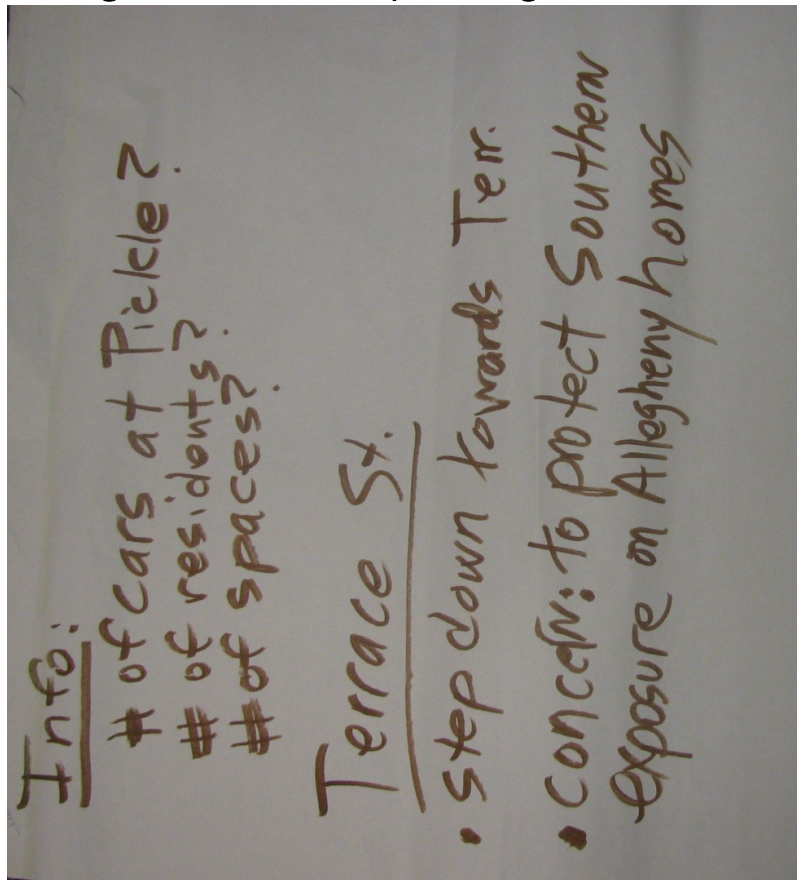 Info:
# of cars at Pickle?
# of residents?
# of spaces?
Terrace St.
• Step down towards Terr.
• concern: to protect Southern
exposure on Allegheny homes